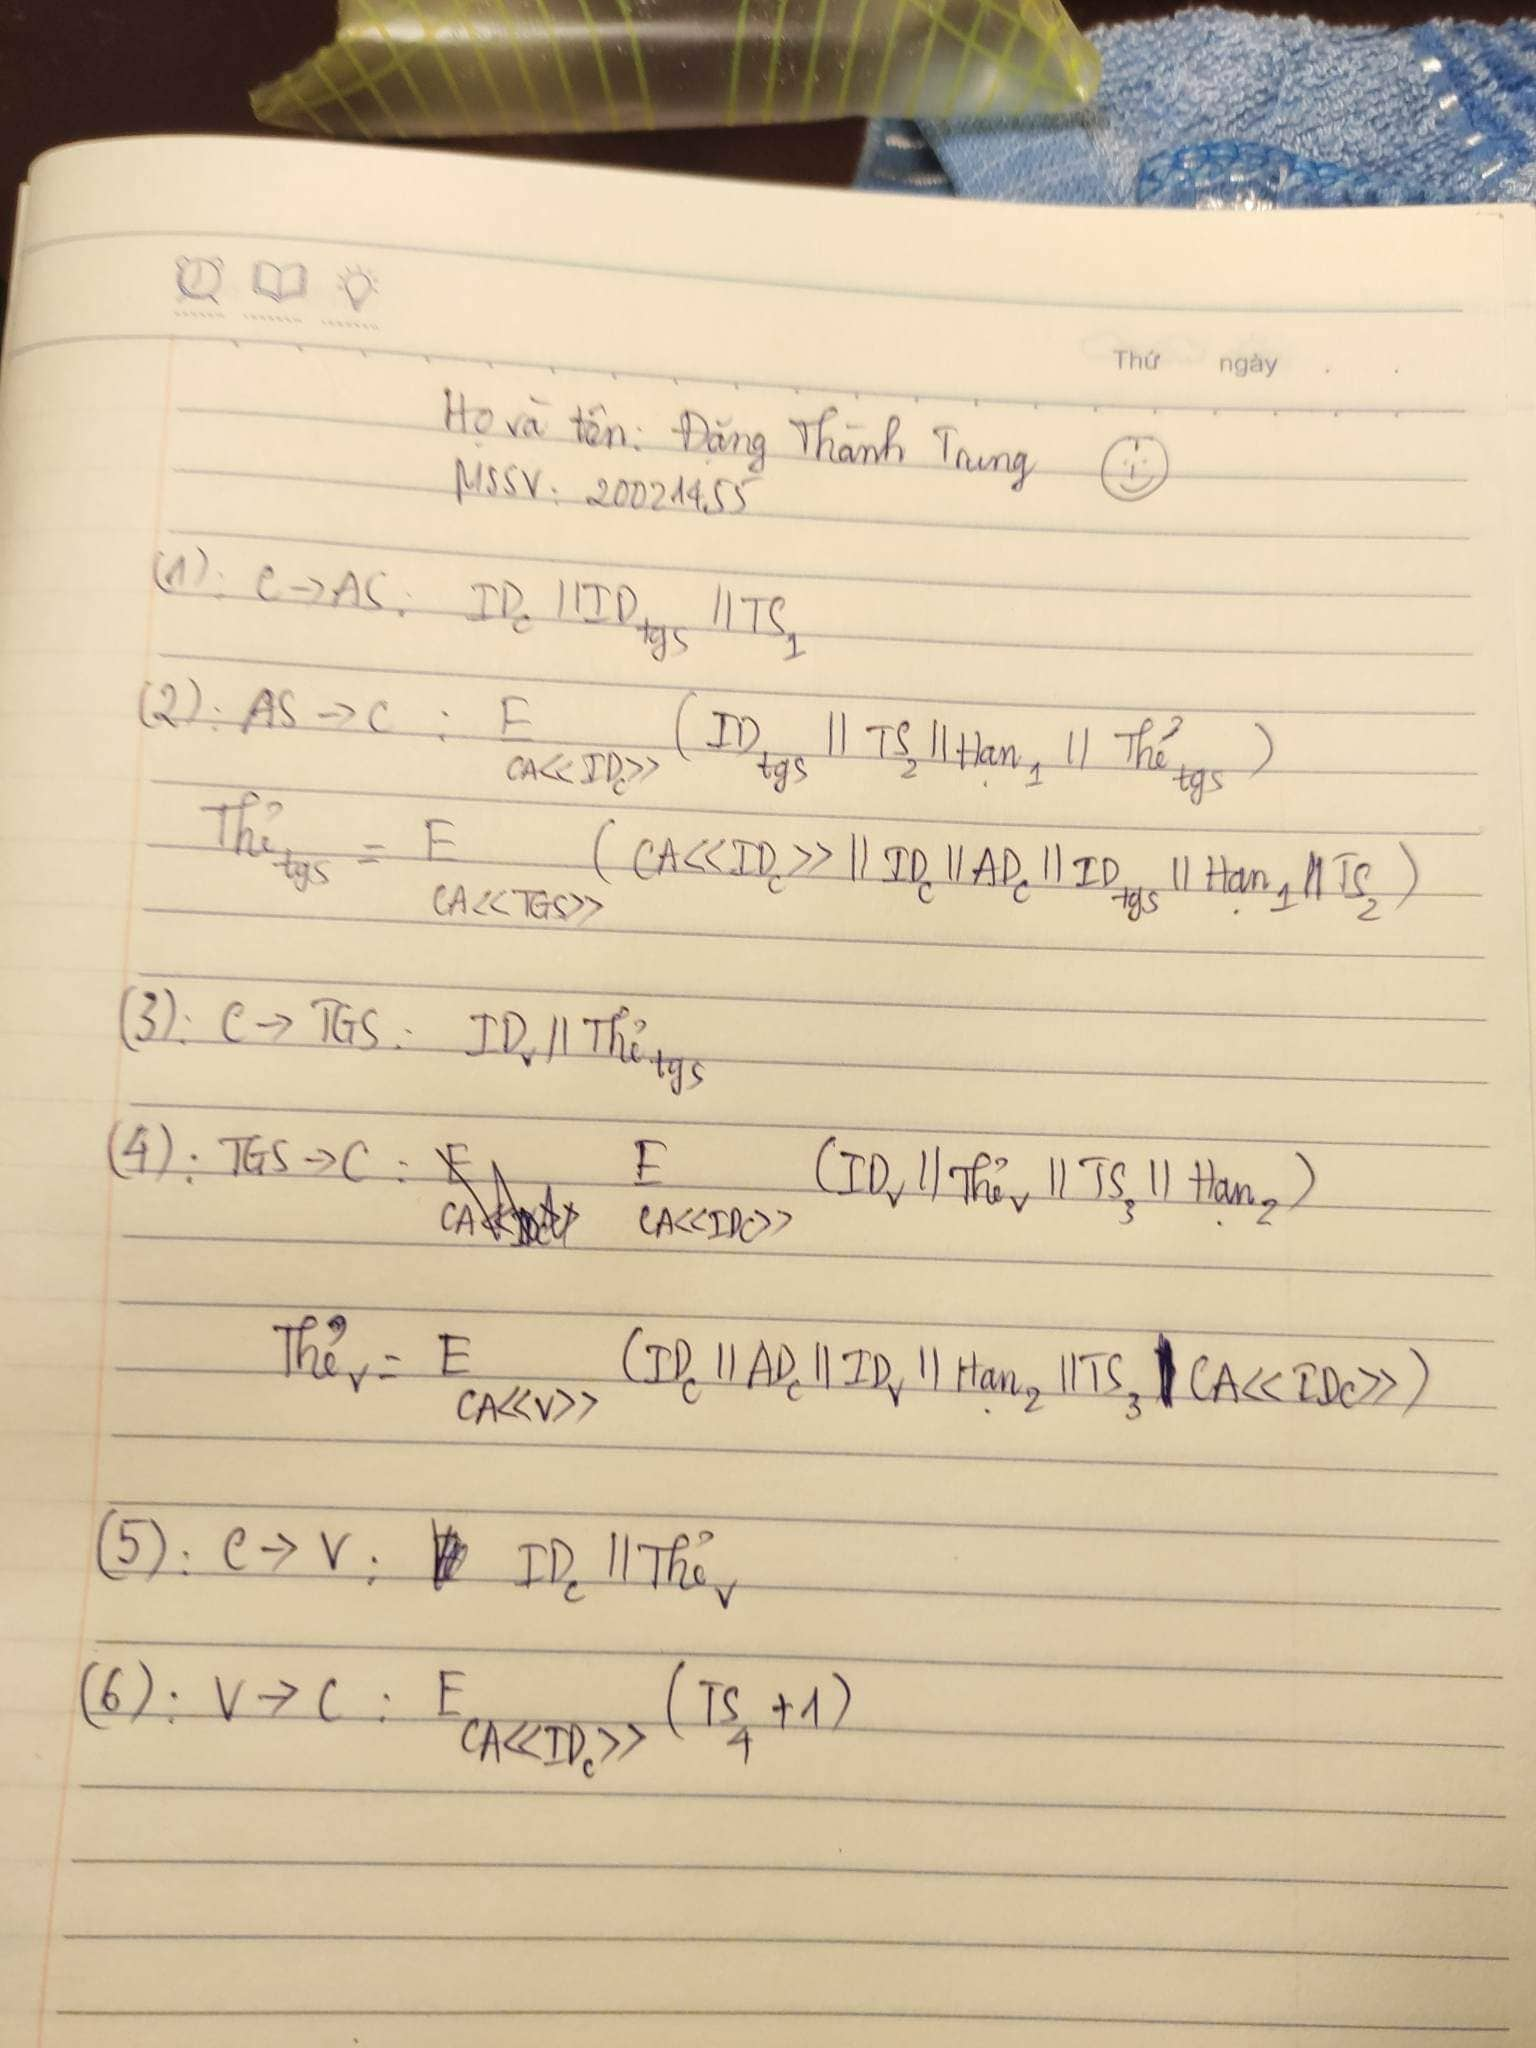 Thứ ngày . .
Họ và tên: Đặng Thành Trung
MSSV: 20021455
(1): C → AS: ID_c || ID_tgs || TS_1
(2): AS → C : E_CA<<ID_c>> (ID_tgs || TS_2 || Hạn_1 || Thẻ_tgs)
Thẻ_tgs = E_CA<<TGS>> (CA<<ID_c>> || ID_c || AD_c || ID_tgs || Hạn_1 || TS_2)
(3): C → TGS: ID_v || Thẻ_tgs
(4): TGS → C : E_CA<<IDC>> (ID_v || Thẻ_v || TS_3 || Hạn_2)
Thẻ_v = E_CA<<V>> (ID_c || AD_c || ID_v || Hạn_2 || TS_3 || CA<<IDC>>)
(5): C → V: ID_c || Thẻ_v
(6): V → C : E_CA<<ID_c>> (TS_4 + 1)